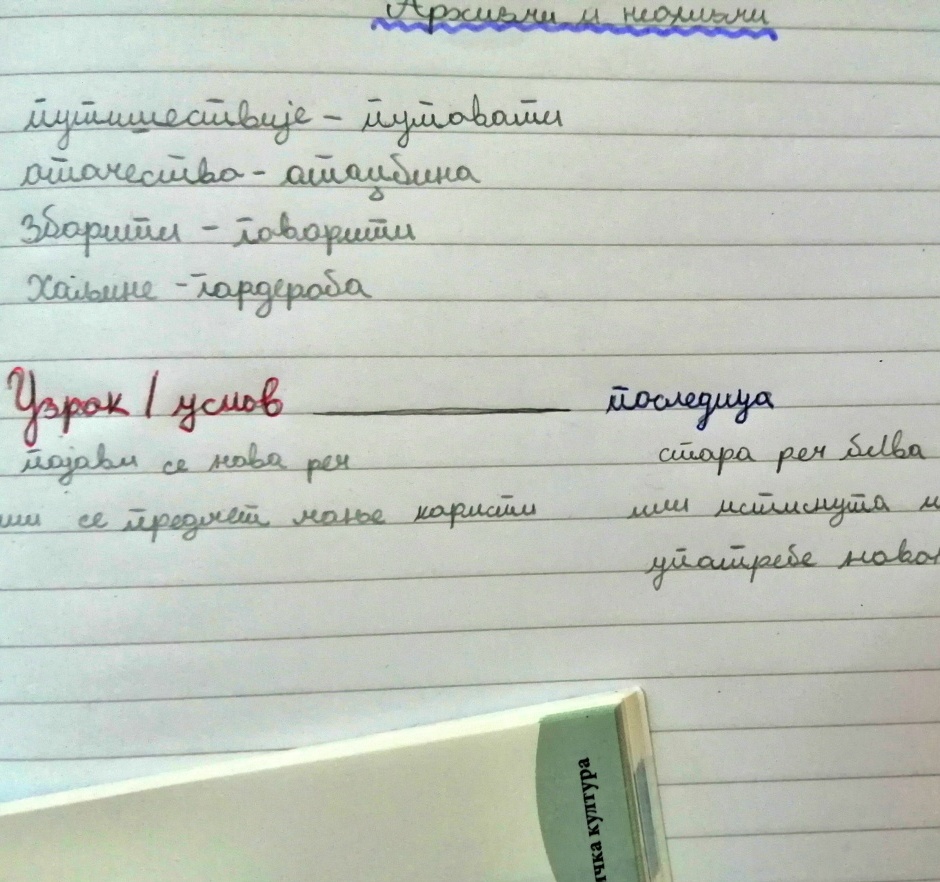 Архизми и неолизми
путишествије - путовати
отачество - отаџбина
Зборити - говорити
Хаљине - гардероба
Узрок / услов последица
појави се нова реч стара реч бива
или се предмет мање користи или истиснута и
употребе ново
ичка култура